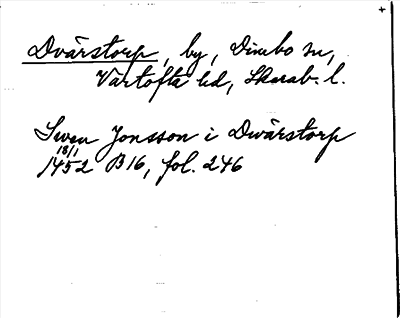 Dvärstorp, by, Dimbo sn,
Vartofta hd, Skarab. l.
Swen Jonsson i Dwärstorp
18/1
1452 B16, fol. 246